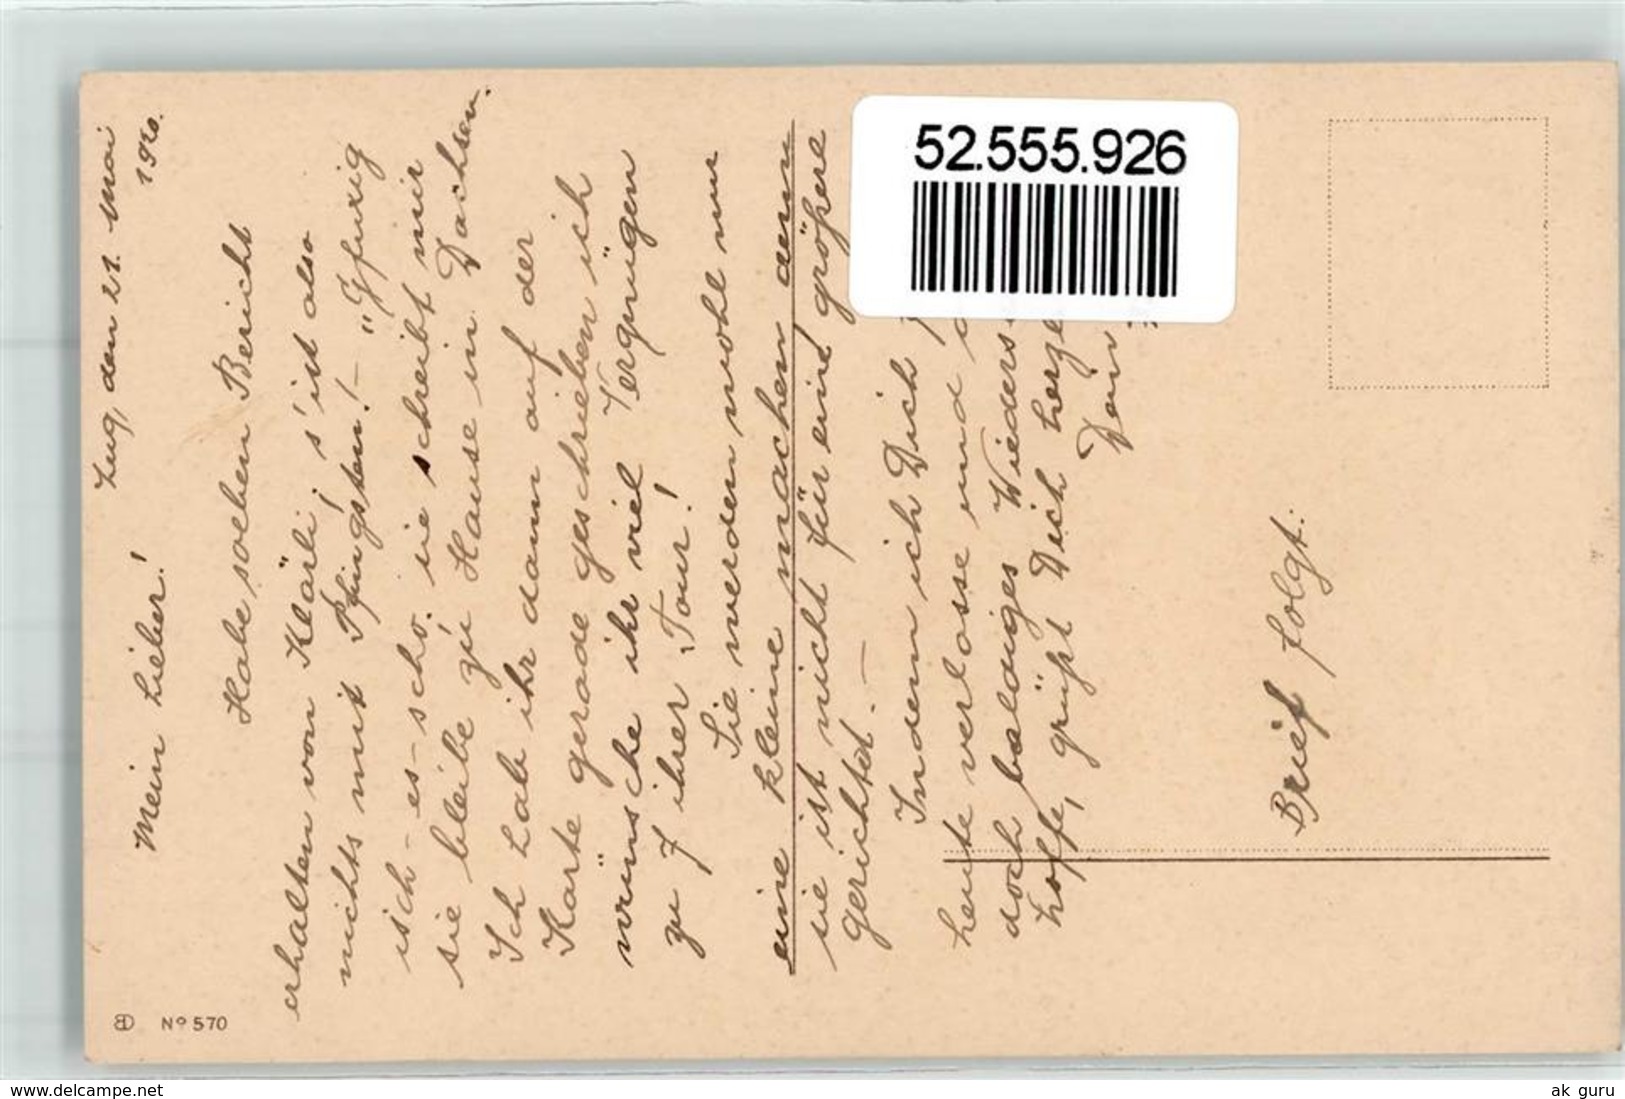 Zug, den 21. Mai
1920.
Mein Lieber!
Habe soeben Bericht
erhalten von Klärli, s'ist also
nichts mit Pfingsten! –
isch-es-scho. sie schreibt mir
sie bleibe zu Hause in Dachsen.
Ich hab ihr dann auf der
Karte gerade geschrieben ich
wünsche ihr viel Vergnügen
zu ihrer Tour!
Sie werden wohl nur
eine kleine machen denn
sie ist nicht für eine größere
gerichtet. –
Indem ich Dich
heute verlasse und
doch baldiges Wieders
hoffe, grüßt Dich herzl
Dein
Brief folgt.
52.555.926
Nº 570
www.delcampe.net
ak guru